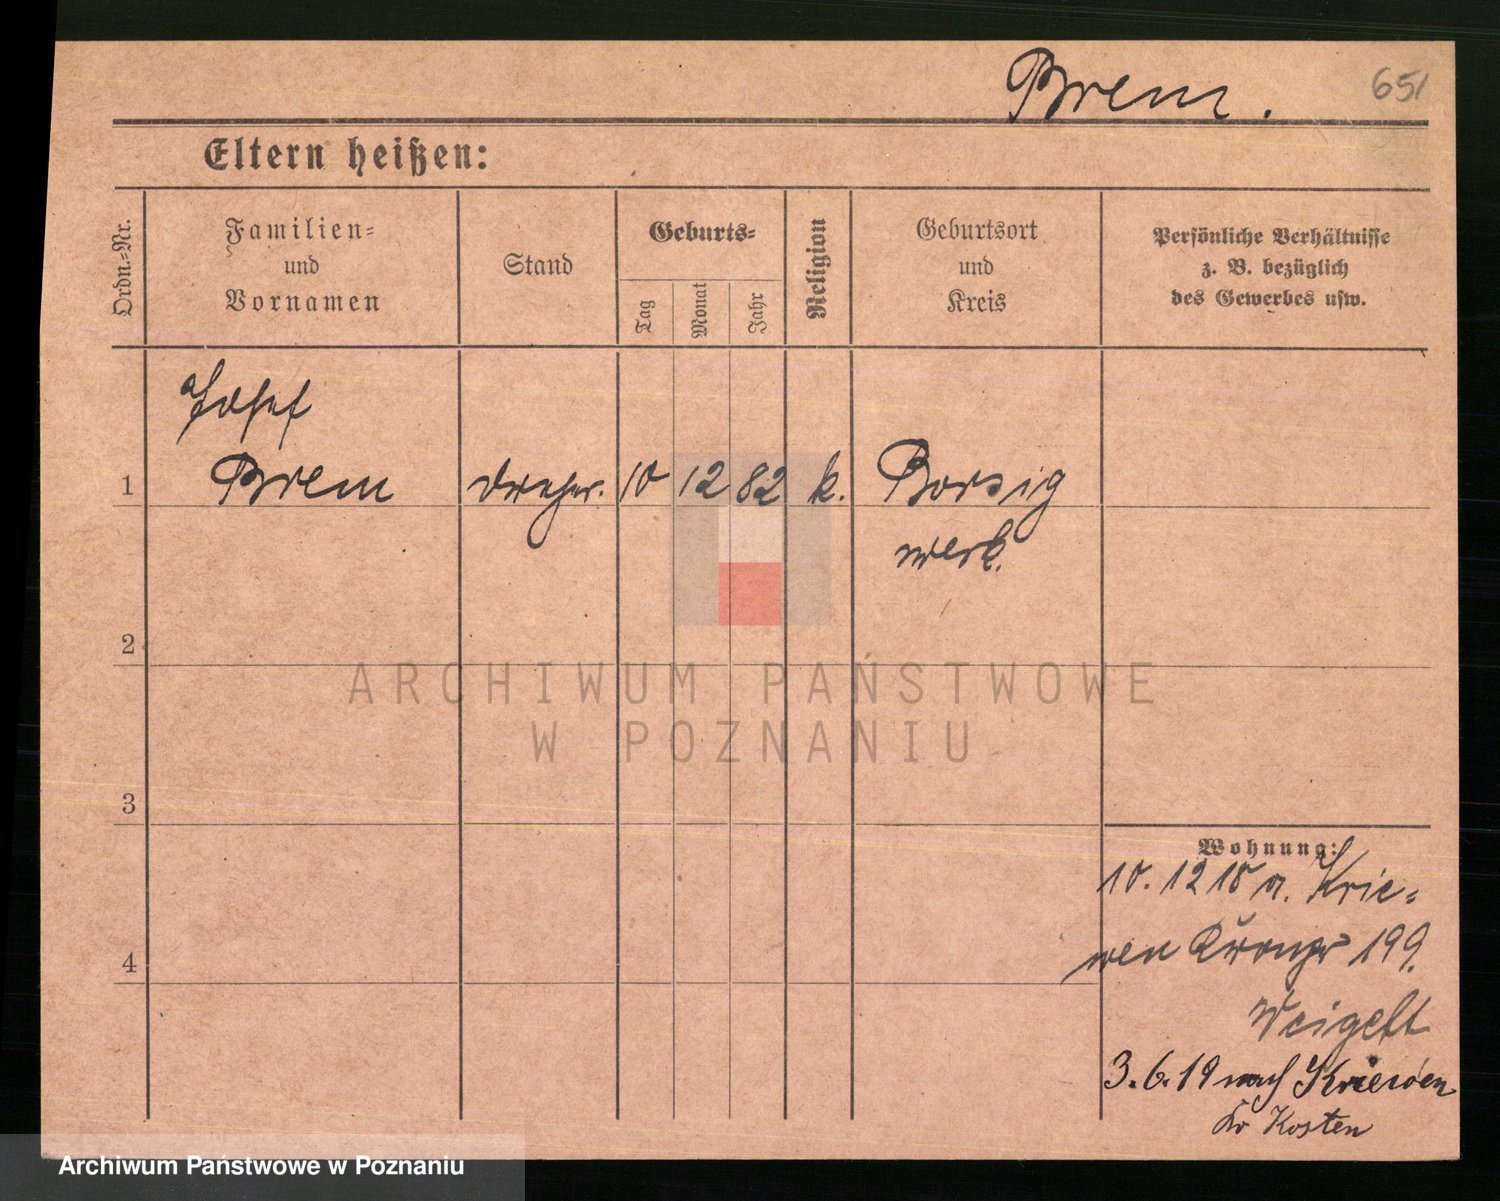 Brem.
651
Eltern heißen:
Ordn.-Nr.
Familien-
und
Vornamen
Stand
Geburts-
Tag
Monat
Jahr
Religion
Geburtsort
und
Kreis
Persönliche Verhältnisse
z. B. bezüglich
des Gewerbes usw.
Josef
1 Brem Dreher. 10 12 82 k. Borsig
werk.
2
3
4
Wohnung:
10. 12 18 a. Krie-
wen 199.
Weigelt
3. 6. 19 nach Kriewen
Kr Kosten
ARCHIWUM PAŃSTWOWE
W POZNANIU
Archiwum Państwowe w Poznaniu